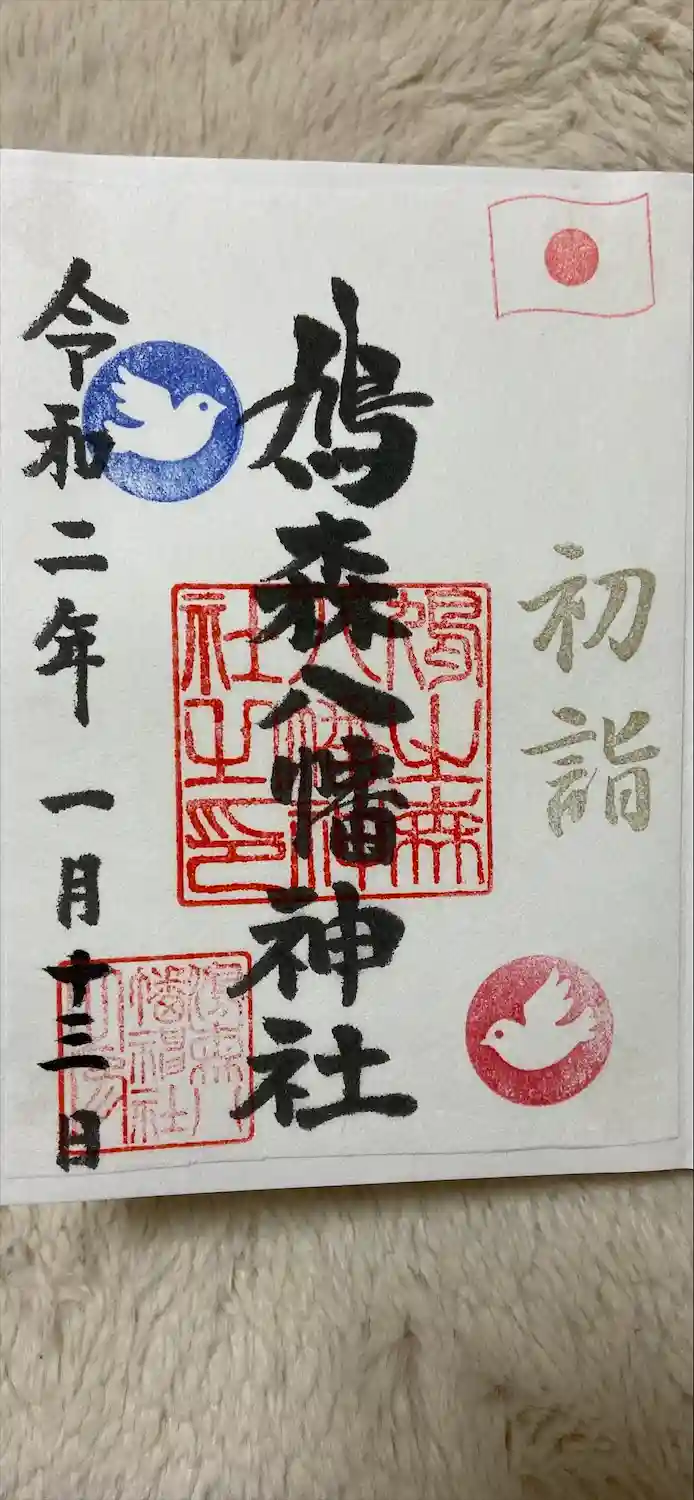 初詣
鳩森八幡神社
鳩之森
八幡神
社之印
令和二年一月十三日